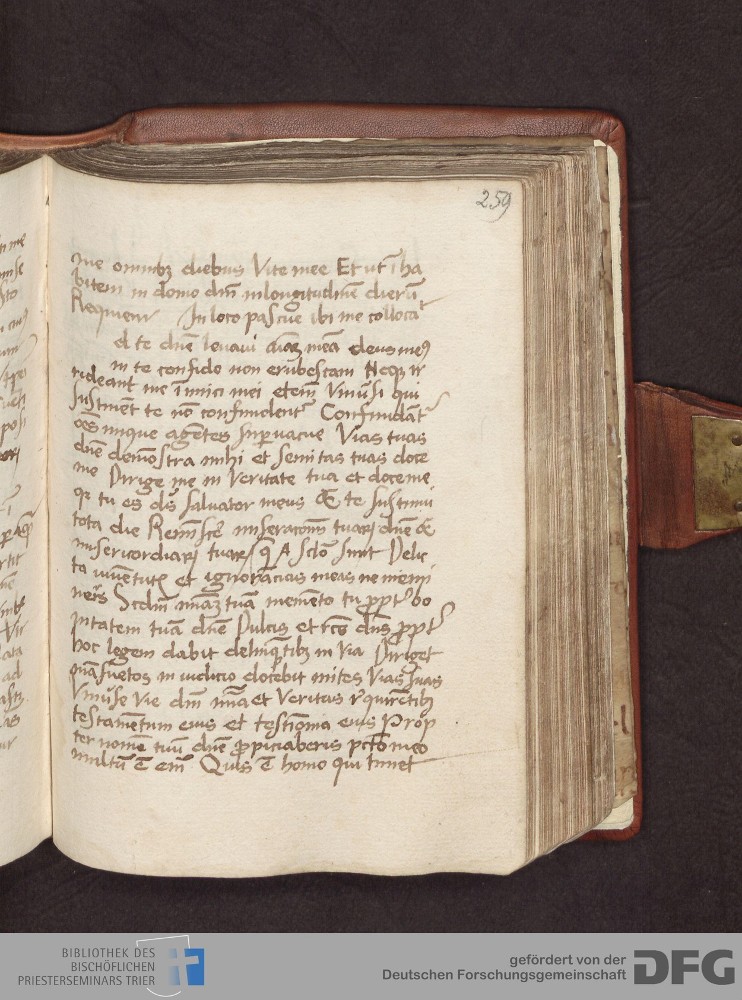 259
me omnibꝫ diebus Vite mee Et ut ī ha
bitem in domo dnī inlongitudinē dierū
Requiem In loco pascue ibi me collocat
d te dnē levavi aīaꝫ meā deus meꝰ
in te confido non erubescam Neqꝫ ir
rideant me īimici mei eteim̄ Vniūsi qui
sustinent te nō confundent Confundāt
oēs inique agētes supvacue Vias tuas
dnē demōstra mihi et semitas tuas doce
me Dirige me in Veritate tua et doce me
qr tu es ds̄ salvator meus & te sustinui
tota die Reminisce miseracionū tuaꝝ dnē &
misericordiaꝝ tuaꝝ q̄ A sclō sunt Delic
ta iuventutꝭ et ignorācias meas ne memi
neris Scdm̄ mīaꝫ tuā memēto tu ꝓpt bo
nitatem tuā dnē Dulcis et rcs dns̄ ꝓpt
hoc legem dabit delinqētibꝫ in via Diriget
māsuetos in iudicio docebit mites Vias suas
Vniūse vie dnī mīa et veritas rquirētibꝫ
testamētum eius et testīonia eius Prop
ter nomē tuū dnē ꝓpiciaberis pctō meo
multū ē eim̄ Quis ē homo qui timet
BIBLIOTHEK DES
BISCHÖFLICHEN
PRIESTERSEMINARS TRIER
gefördert von der
Deutschen Forschungsgemeinschaft
DFG